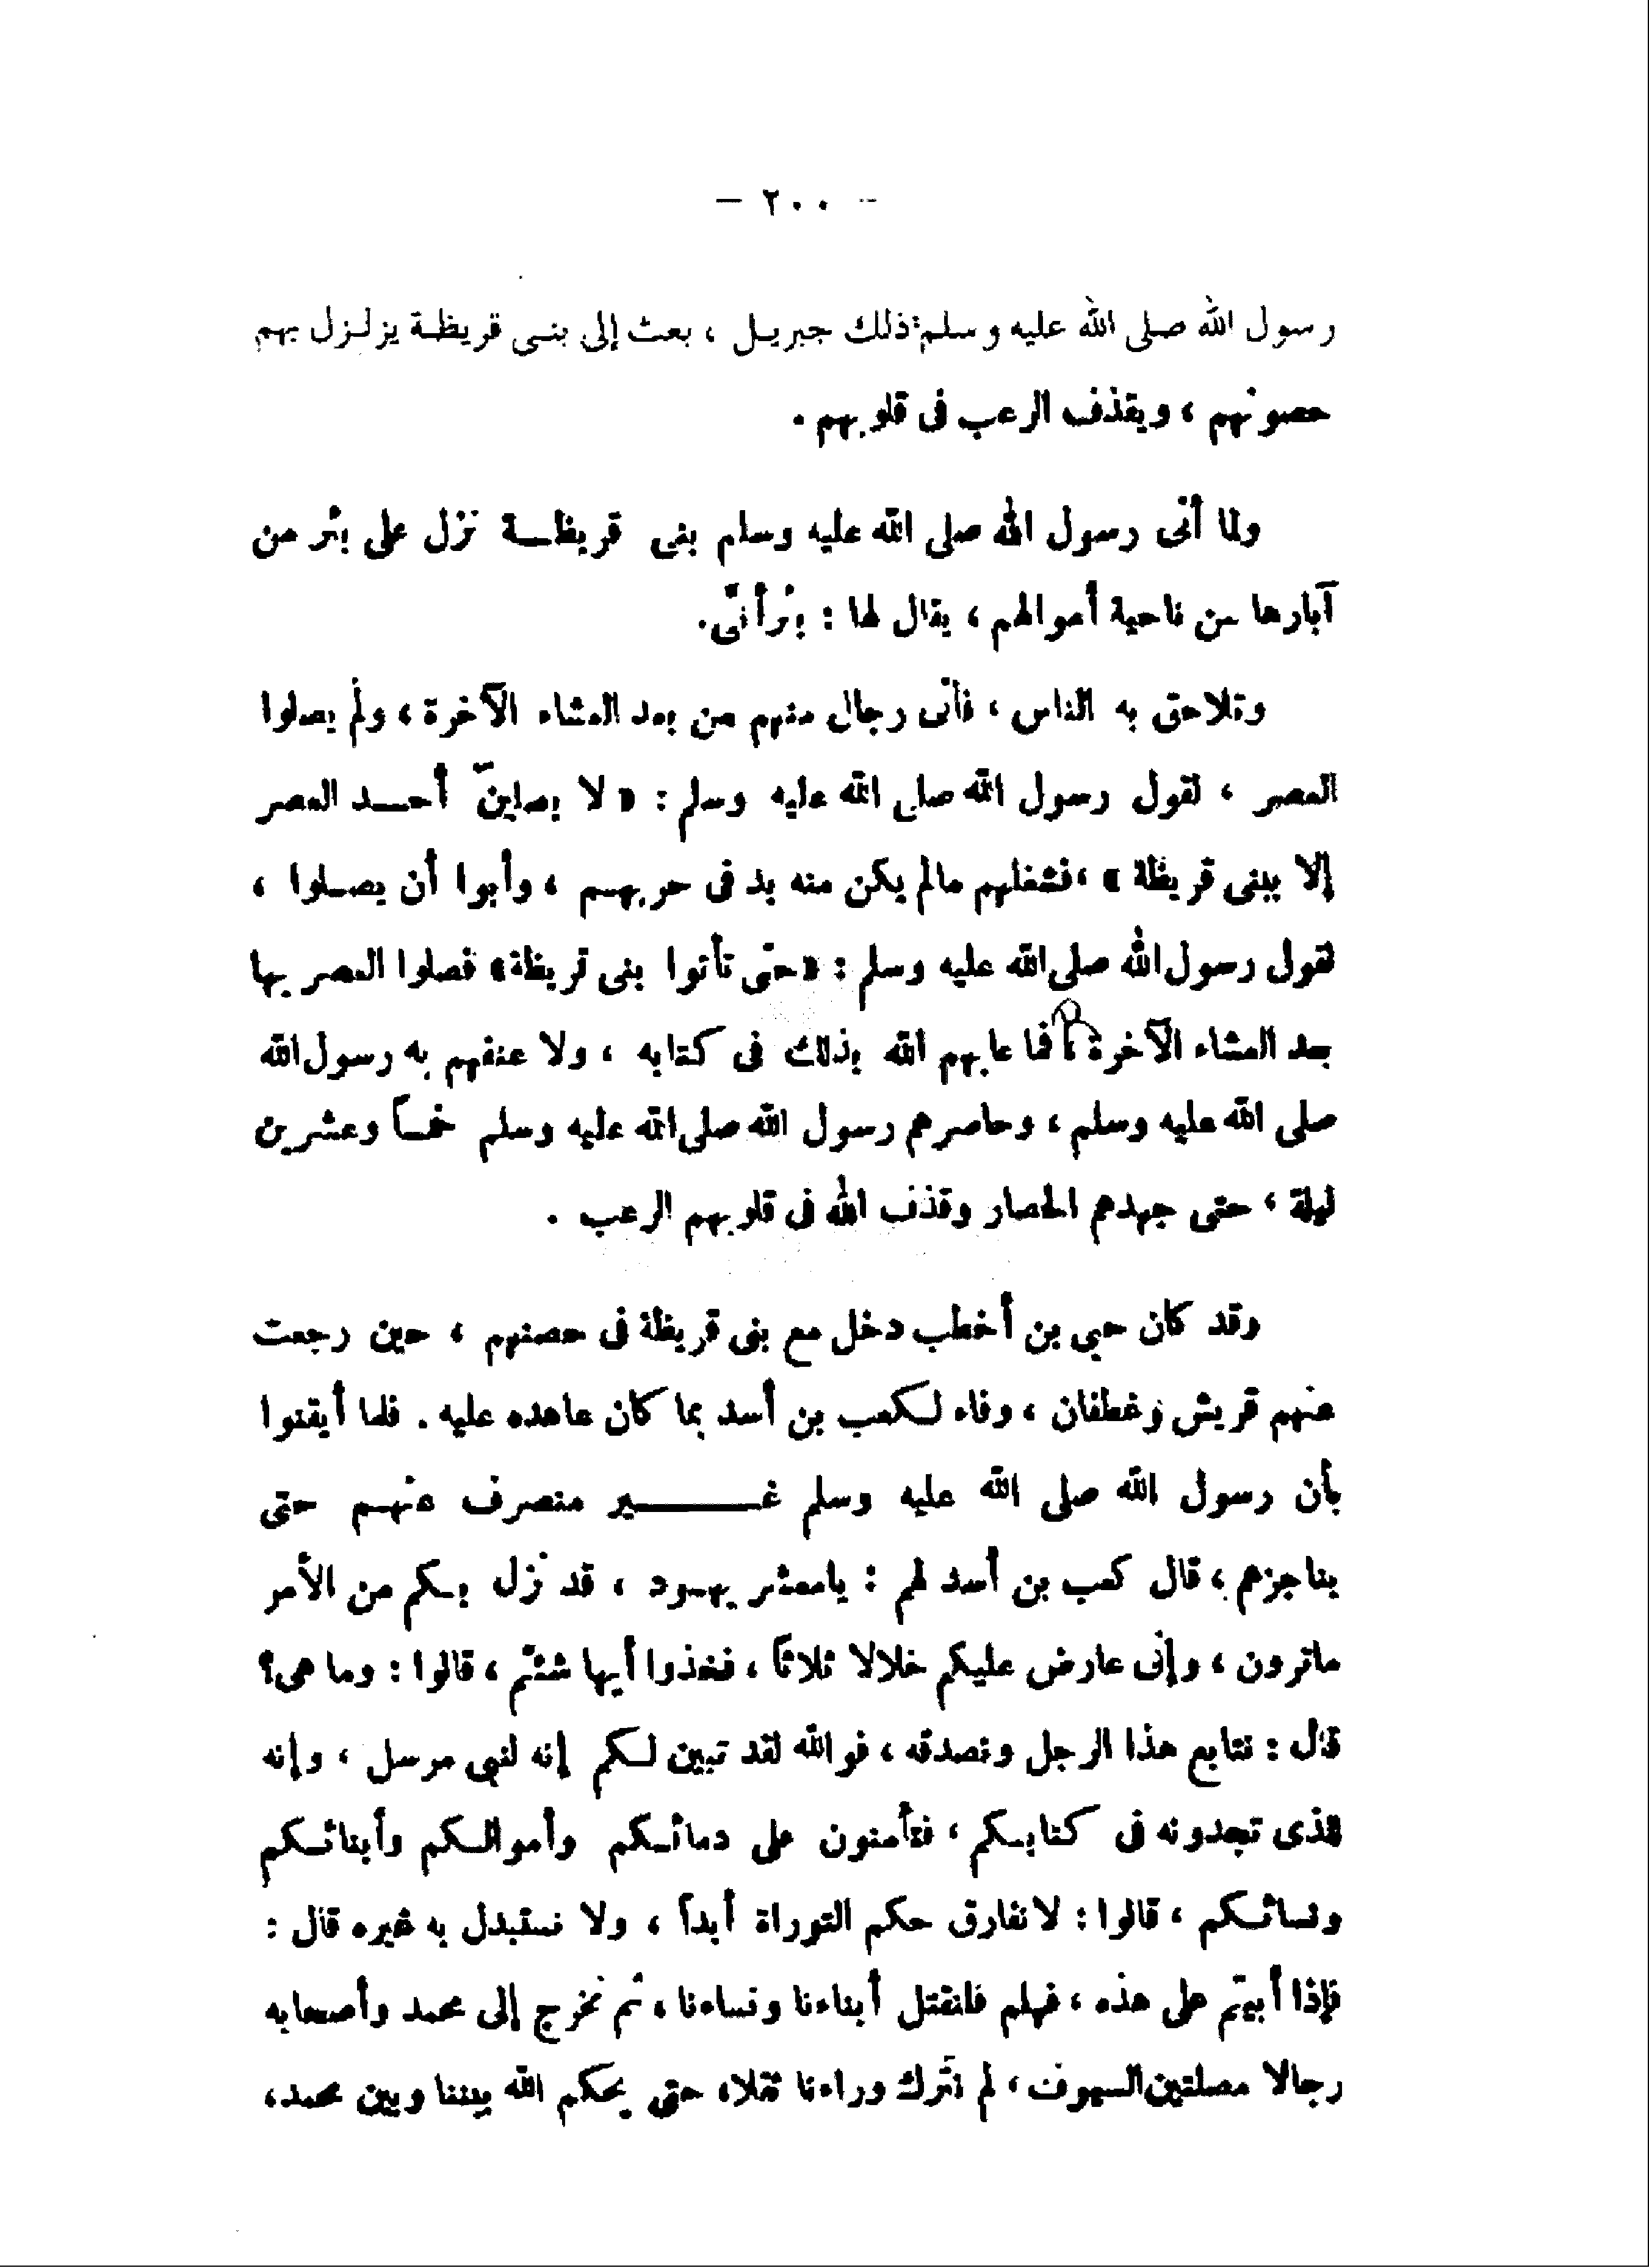 — ٢٠٠ —
رسول الله صلى الله عليه وسلم : ذلك جبريل ، بعث إلى بنى قريظة يزلزل بهم
حصونهم ، ويقذف الرعب فى قلوبهم .
ولما أتى رسول الله صلى الله عليه وسلم بنى قريظة نزل على بئر من
آبارها من ناحية أموالهم ، يقال لها : بئر أنّى.
وتلاحق به الناس ، فأتى رجال منهم من بعد العشاء الآخرة ، ولم يصلوا
العصر ، لقول رسول الله صلى الله عليه وسلم : « لا يصلينّ أحد العصر
إلا ببنى قريظة » ، فشغلهم مالم يكن منه بد فى حربهم ، وأبوا أن يصلوا ،
لقول رسول الله صلى الله عليه وسلم : «حتى تأتوا بنى قريظة» فصلوا العصر بها
بعد العشاء الآخرة فما عابهم الله بذلك فى كتابه ، ولا عنفهم به رسول الله
صلى الله عليه وسلم ، وحاصرهم رسول الله صلى الله عليه وسلم خمساً وعشرين
ليلة ، حتى جهدهم الحصار وقذف الله فى قلوبهم الرعب .
وقد كان حيى بن أخطب دخل مع بنى قريظة فى حصنهم ، حين رجعت
عنهم قريش وغطفان ، وفاء لكعب بن أسد بما كان عاهده عليه . فلما أيقنوا
بأن رسول الله صلى الله عليه وسلم غير منصرف عنهم حتى
يناجزهم ، قال كعب بن أسد لهم : يامعشر يهود ، قد نزل بكم من الأمر
ماترون ، وإنى عارض عليكم خلالا ثلاثاً ، فخذوا أيها شئتم ، قالوا : وما هى؟
قال : نتابع هذا الرجل ونصدقه ، فوالله لقد تبين لكم إنه لنبى مرسل ، وإنه
للذى تجدونه فى كتابكم ، فتأمنون على دمائكم وأموالكم وأبنائكم
ونسائكم ، قالوا : لا نفارق حكم التوراة أبداً ، ولا نستبدل به غيره قال :
فإذا أبيتم على هذه ، فهلم فلنقتل أبناءنا ونساءنا ، ثم نخرج إلى محمد وأصحابه
رجالا مصلتين السيوف ، لم نترك وراءنا ثقلا، حتى يحكم الله بيننا وبين محمد،